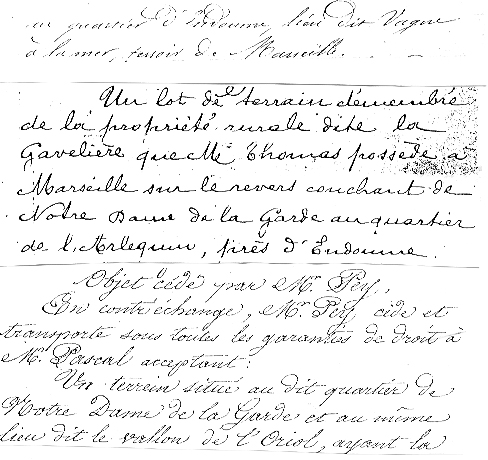 au quartier d'Endoume, lieu dit Vagne
à la mer, terroir de Marseille.
Un lot de terrain démembré
de la propriété rurale dite la
Gavelière que Mr Thomas possède à
Marseille sur le revers couchant de
Notre Dame de la Garde au quartier
de l'Arlequin, près d'Endoume.
Objet cédé par Mr. Pey,
En contréchange, Mr. Pey, cède et
transporte sous toutes les garanties de droit à
Mr. Pascal acceptant:
Un terrein situé au dit quartier de
Notre Dame de la Garde et au même
lieu dit le vallon de l'Oriol, ayant la